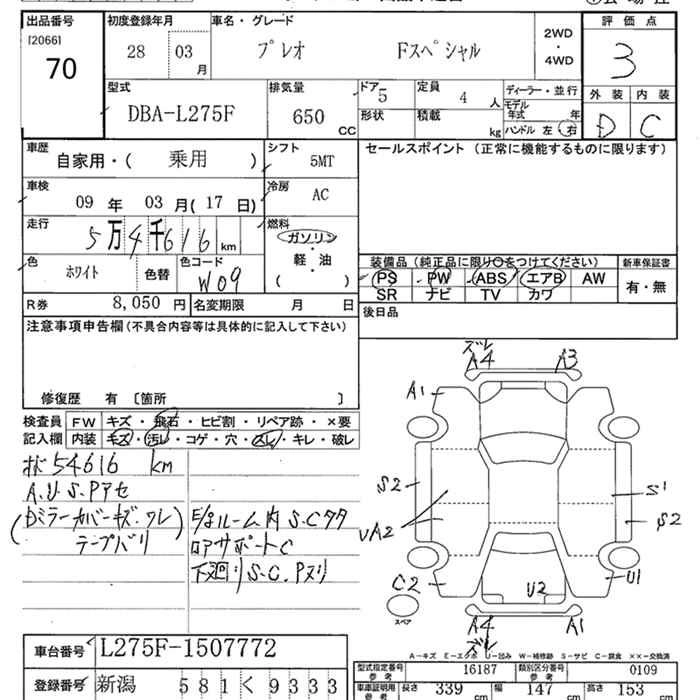 出品番号 初度登録年月 車名・グレード 評価点
[2066] 28 03月 プレオ Fスペシャル 2WD・4WD 3
70
型式 排気量 ドア 定員 ディーラー・並行 外装 内装
DBA-L275F 650 CC 5 4 人 モデル年式 年 D C
形状 積載 kg ハンドル 左 右
車歴 シフト セールスポイント (正常に機能するものに限ります)
自家用・( 乗用 ) 5MT
車検 冷房
09 年 03 月(17 日) AC
走行 燃料
5万4千616 km ガソリン・軽・油 ( )
色 色コード 装備品 (純正品に限り○をつけてください) 新車保証書
ホワイト 色替 W09 PS PW ABS エアB AW 有・無
SR ナビ TV カワ
R券 8,050 円 名変期限 月 日 後日品
注意事項申告欄(不具合内容等は具体的に記入して下さい)
修復歴 有 〔箇所 〕
検査員記入欄 FW キズ・飛石・ヒビ割・リペア跡・×要
内装 キズ・汚レ・コゲ・穴・スレ・キレ・破レ
54616 km
A.U.S.Pアセ
(Dミラーカバーキズ.ワレ)
テープバリ
E/gルーム内 S.Cタタ
ロアサポートC
下廻リ S.C.Pヌリ
ズレ
A4 A3
A1
S2 S1
UA2 S2
C2 U2 U1
スペア
A4 A1
ズレ
A-キズ E-エクボ U-凹み W-補修跡 S-サビ C-腐食 ××-交換済
車台番号 L275F-1507772
型式指定番号 参考 16187 類別区分番号 参考 0109
登録番号 新潟 581 く 9333
車庫証明用 参考 長さ 339 cm 幅 147 cm 高さ 153 cm